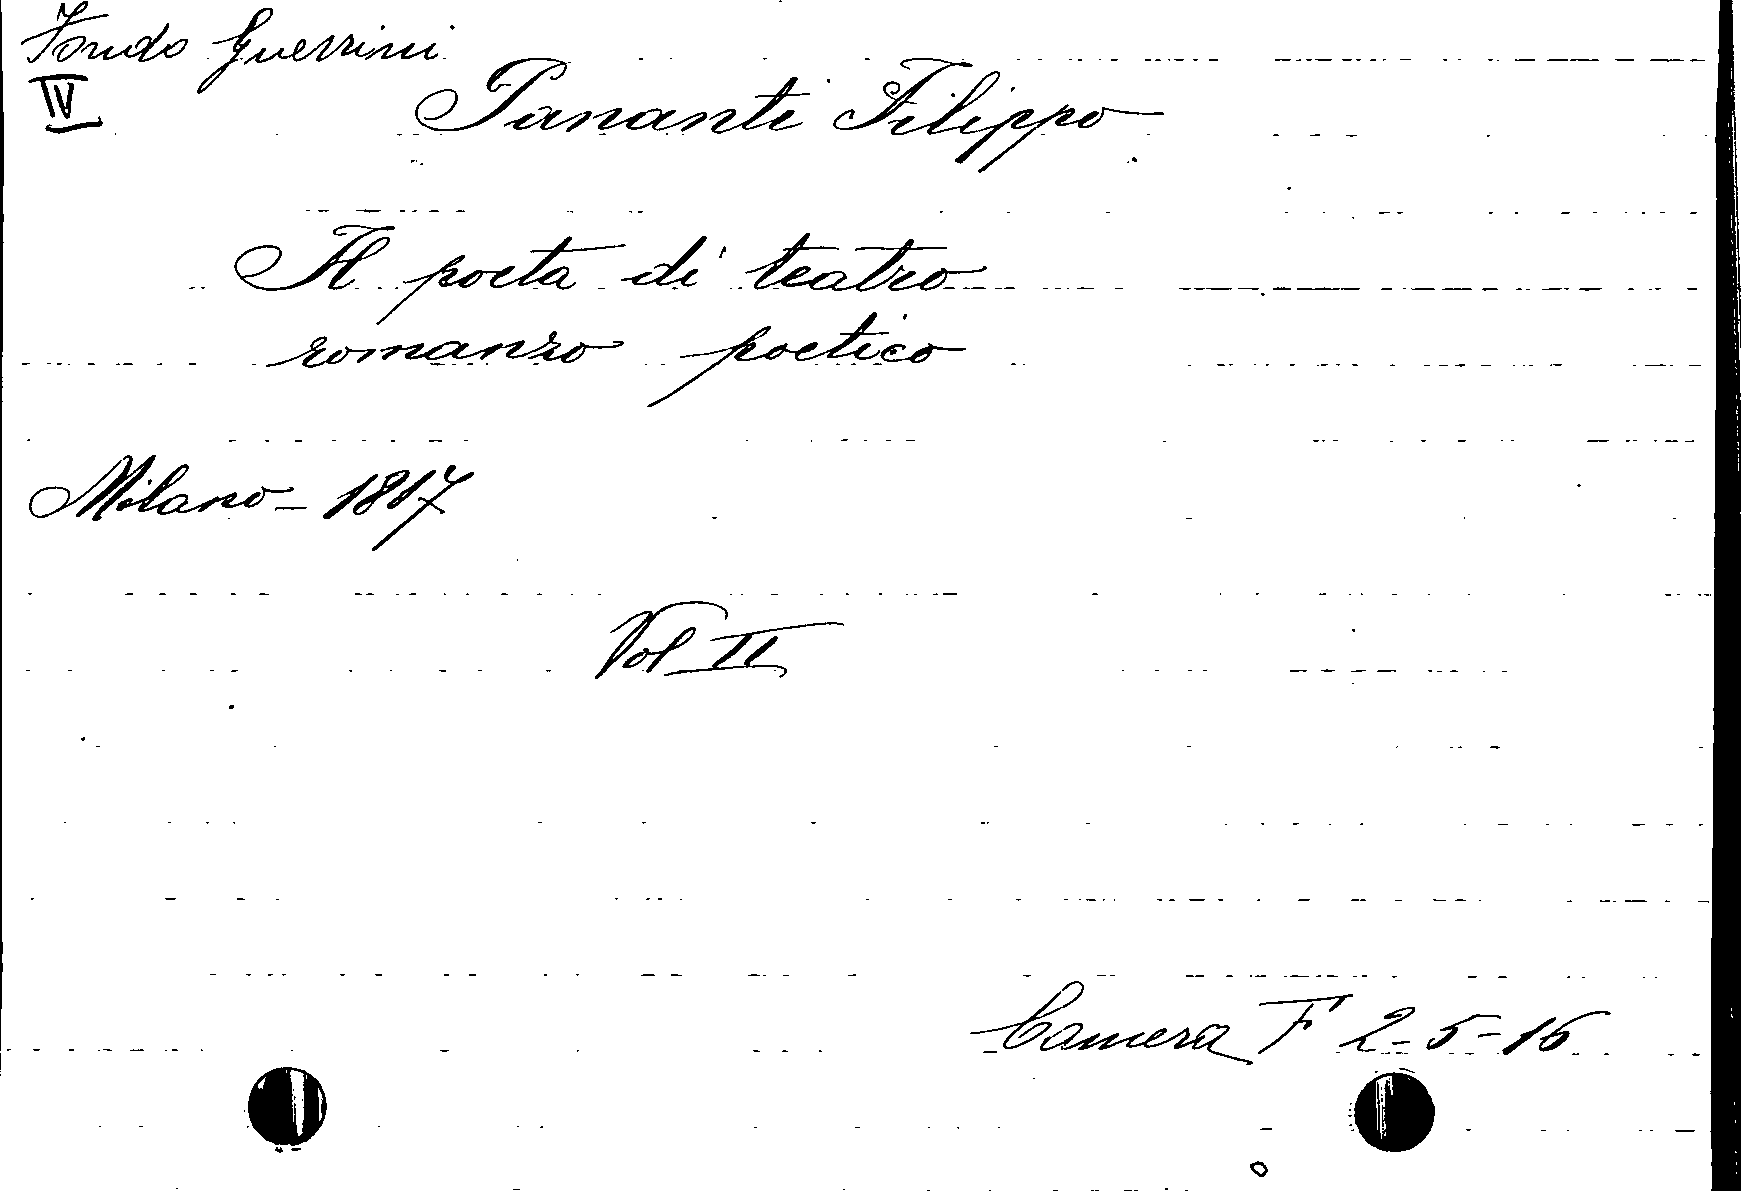 Fondo Guerrini
IV
Pananti Filippo
Il poeta di teatro
romanzo poetico
Milano - 1817
Vol II
Camera F 2-5-16